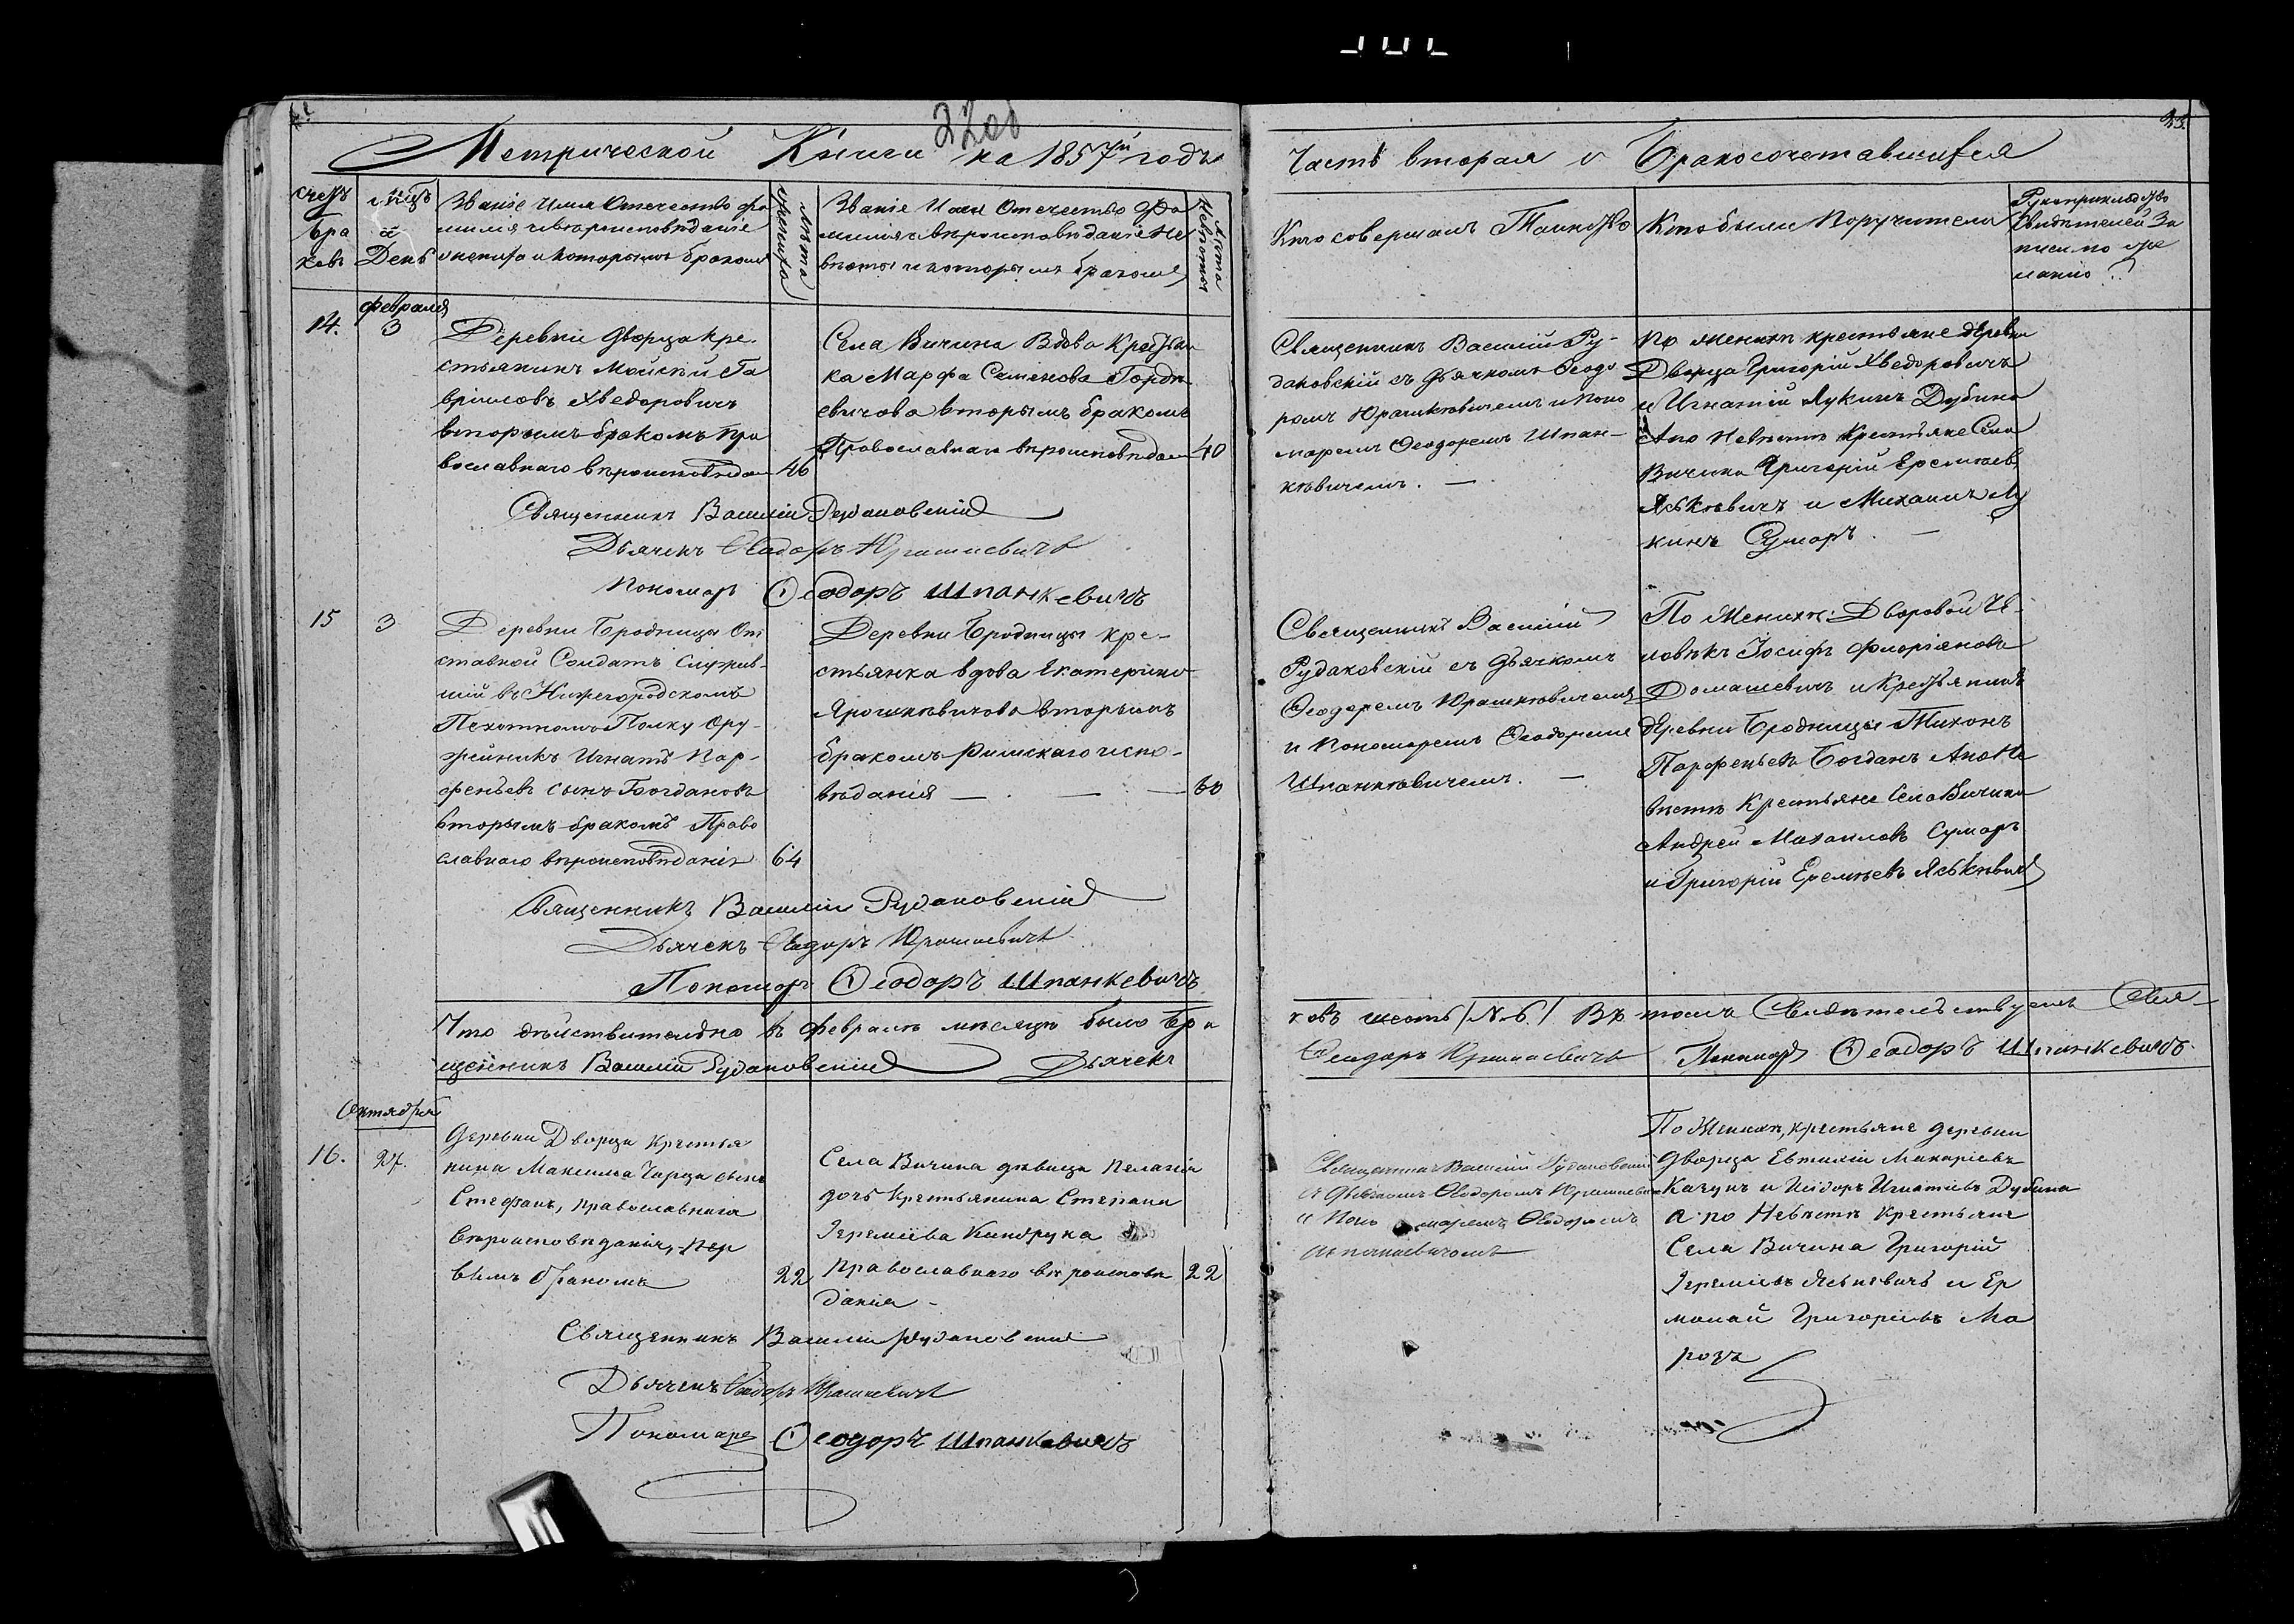 220б
Метрической Книги на 1857й годъ
Часть вторая о Бракосочетавшихся
23.
счетъ бра ковъ
День
Званіе Имя Отечество фа
милія и вѣроисповѣданіе
жениха и которымъ бракомъ
Лѣта жениха
Званіе Имя Отечество Фа
милія и вѣроисповѣданіе не
вѣсты и которымъ бракомъ
Лѣта Невѣсты
Кто совершалъ Таинство
Кто были Поручители
Рукоприкладство
Свидѣтелей За
писи по же
ланію
Февраля
14.
3
Деревни Дворца Кре
стьянинъ Мойсѣй Га
вріиловъ Хведоровичъ
вторымъ бракомъ пра
вославнаго вѣроисповѣда 46
Села Вичина Вдова Крестьян
ка Марфа Семенова Горди
евичова вторымъ бракомъ
Православнаго вѣроисповѣдан 40
Священникъ Василій Ру-
даковскій съ Дьячкомъ Ѳеодо
ромъ Юрашкѣвичемъ и поно
маремъ Ѳеодоромъ Шпан-
кѣвичемъ. —
По женихѣ крестьяне деревни
Дворца Григорій Хведоровичъ
и Игнатій Лукинъ Дубина
А по Невѣстѣ Крестьяне Села
Вичина Григорій Еремѣевъ
Яськѣвичъ и Михаилъ Лу
кинъ Сумаръ. —
Священникъ Василій Рудаковскій
Дьячекъ Ѳеодоръ Юрашкевичъ
Пономарь Ѳеодоръ Шпанкевичъ
15
3
Деревни Бродницы От
ставной Солдатъ Служив-
шій въ Нижегородскомъ
Пехотномъ Полку Ору-
жейникъ Игнатъ Пар-
феньевъ сынъ Богдановъ
вторымъ бракомъ Право
славнаго вѣроисповѣданія 64
Деревни Бродницы кре-
стьянка вдова Екатерина
Ярошкѣвичова вторымъ
бракомъ Римскаго испо-
вѣданія — . — — 60
Священникъ Василій
Рудаковскій съ Дьячкомъ
Ѳеодоромъ Юрашкѣвичемъ
и Пономаремъ Ѳеодоромъ
Шпанкѣвичемъ. —
По Женихѣ: Дворовой Че-
ловѣкъ Іосифъ Флоріяновъ
Домашевичъ и Крестьянинъ
деревни Бродницы Тихонъ
Парфеньевъ Богданъ А по Не
вѣстѣ Крестьяне Села Вичина
Андрей Михаиловъ Сумаръ
и Григорій Еремѣевъ Яськѣвичъ
Священникъ Василій Рудаковскій
Дьячекъ Ѳеодоръ Юрашкевичъ
Пономарь Ѳеодоръ Шпанкевичъ
Что дѣйствительно въ Февралѣ мѣсяцѣ было Бра
ковъ шесть /№ 6./ Въ томъ Свидѣтельствуемъ Свя-
щенникъ Василій Рудаковскій Дьячекъ
Ѳеодоръ Юрашкевичъ Пономарь Ѳеодоръ Шпанкевичъ.
Октября
16.
27.
Деревни Дворца крестья
нина Максима Чарца сынъ
Стефанъ, православнаго
вѣроисповѣданія, пер
вымъ бракомъ 22
Села Вичина дѣвица Пелагія
дочь Крестьянина Степана
Іереміева Кандрука
православнаго вѣроисповѣ 22
данія -
Священникъ Василій Рудаковскій
съ Дьячкомъ Ѳеодоромъ Юрашкевич
и Поно маремъ Ѳеодоромъ
Шпанкевичомъ
По Женихѣ, крестьяне деревни
Дворца Евтихій Макаріевъ
Качукъ и Исидоръ Игнатіевъ Дубина
а по Невѣстѣ Крестьяне
Села Вичина Григорій
Іереміевъ Яськевичъ и Ер
молай Григоріевъ Мо
розъ
Священникъ Василій Рудаковскій
Дьячекъ Ѳеодоръ Юрашкевичъ
Пономарь Ѳеодоръ Шпанкевичъ